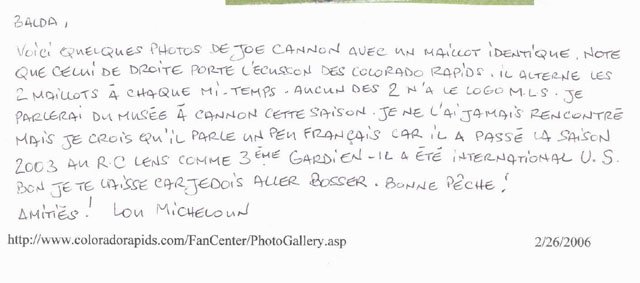 BALDA,
VOICI QUELQUES PHOTOS DE JOE CANNON AVEC UN MAILLOT IDENTIQUE. NOTE
QUE CELUI DE DROITE PORTE L'ÉCUSSON DES COLORADO RAPIDS. IL ALTERNE LES
2 MAILLOTS À CHAQUE MI-TEMPS. AUCUN DES 2 N'A LE LOGO MLS. JE
PARLERAI DU MUSÉE À CANNON CETTE SAISON. JE NE L'AI JAMAIS RENCONTRÉ
MAIS JE CROIS QU'IL PARLE UN PEU FRANÇAIS CAR IL A PASSÉ LA SAISON
2003 AU R.C LENS COMME 3ÈME GARDIEN - IL A ÉTÉ INTERNATIONAL U.S.
BON JE TE LAISSE CAR JE DOIS ALLER BOSSER. BONNE PÊCHE!
AMITIÉS! LOU MICHELOUN
http://www.coloradorapids.com/FanCenter/PhotoGallery.asp 2/26/2006